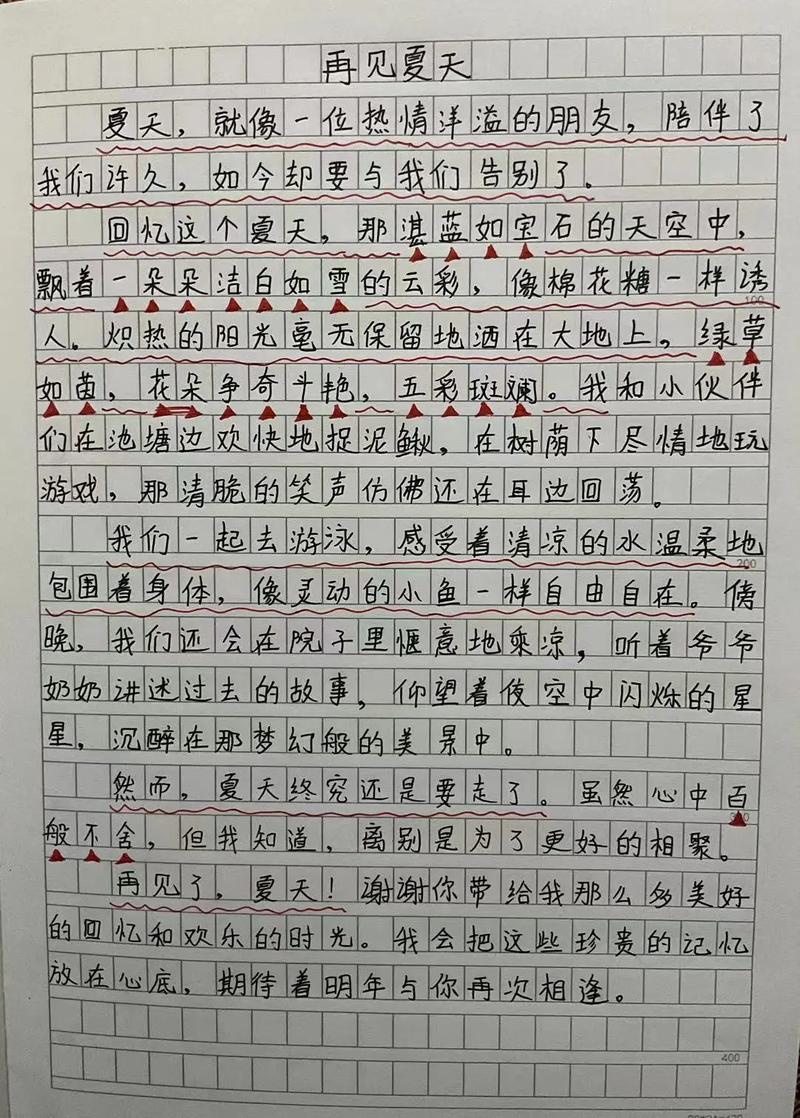 再见夏天
夏天，就像一位热情洋溢的朋友，陪伴了
我们许久，如今却要与我们告别了。
回忆这个夏天，那湛蓝如宝石的天空中，
飘着一朵朵洁白如雪的云彩，像棉花糖一样诱
100
人。炽热的阳光毫无保留地洒在大地上，绿草
如茵，花朵争奇斗艳，五彩斑斓。我和小伙伴
们在池塘边欢快地捉泥鳅，在树荫下尽情地玩
游戏，那清脆的笑声仿佛还在耳边回荡。
我们一起去游泳，感受着清凉的水温柔地
200
包围着身体，像灵动的小鱼一样自由自在。傍
晚，我们还会在院子里惬意地乘凉，听着爷爷
奶奶讲述过去的故事，仰望着夜空中闪烁的星
星，沉醉在那梦幻般的美景中。
然而，夏天终究还是要走了。虽然心中百
般不舍，但我知道，离别是为了更好的相聚。
再见了，夏天！谢谢你带给我那么多美好
的回忆和欢乐的时光。我会把这些珍贵的记忆
放在心底，期待着明年与你再次相逢。
400